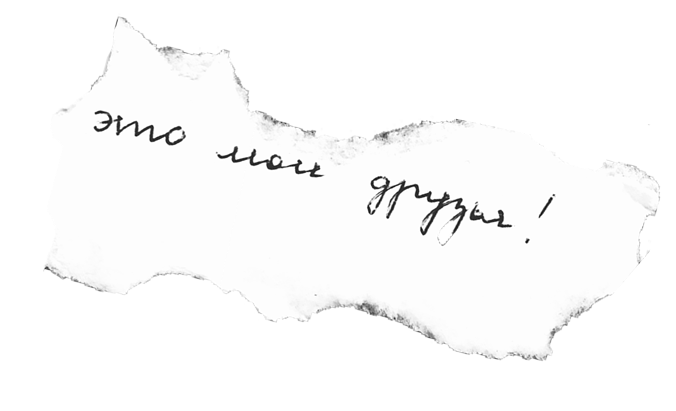 это мои друзья!